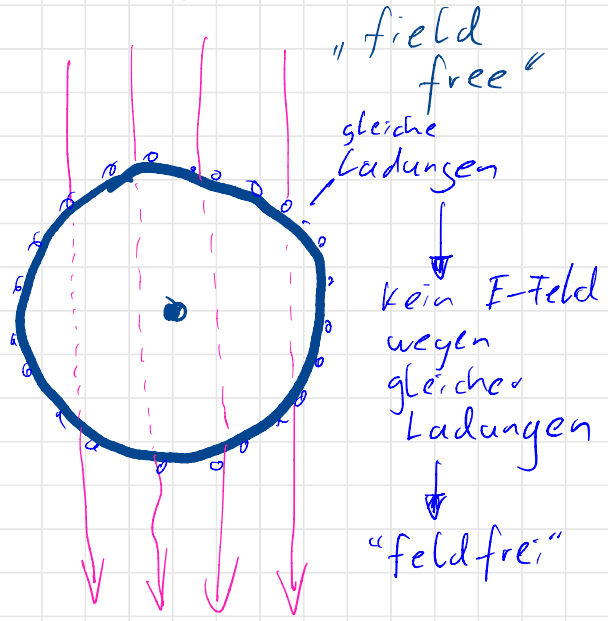 „field
free“
gleiche
Ladungen
kein E-Feld
wegen
gleicher
Ladungen
“feldfrei“